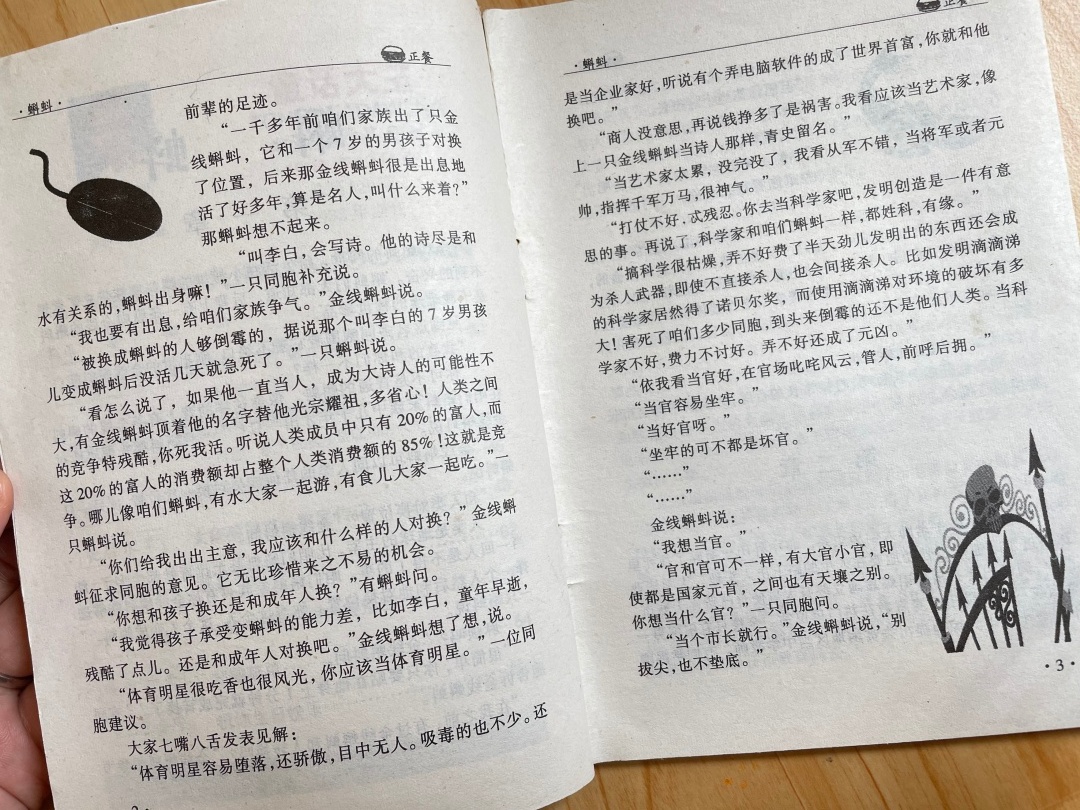 ·蝌蚪·
正餐
前辈的足迹。
“一千多年前咱们家族出了只金
线蝌蚪，它和一个7岁的男孩子对换
了位置，后来那金线蝌蚪很是出息地
活了好多年,算是名人,叫什么来着?”
那蝌蚪想不起来。
“叫李白，会写诗。他的诗尽是和
水有关系的,蝌蚪出身嘛！”一只同胞补充说。
“我也要有出息,给咱们家族争气。”金线蝌蚪说。
“被换成蝌蚪的人够倒霉的，据说那个叫李白的7岁男孩
儿变成蝌蚪后没活几天就急死了。”一只蝌蚪说。
“看怎么说了，如果他一直当人，成为大诗人的可能性不
大,有金线蝌蚪顶着他的名字替他光宗耀祖,多省心！人类之间
的竞争特残酷,你死我活。听说人类成员中只有20%的富人,而
这20%的富人的消费额却占整个人类消费额的85%！这就是竞
争。哪儿像咱们蝌蚪,有水大家一起游,有食儿大家一起吃。”一
只蝌蚪说。
“你们给我出出主意，我应该和什么样的人对换？”金线蝌
蚪征求同胞的意见。它无比珍惜来之不易的机会。
“你想和孩子换还是和成年人换？”有蝌蚪问。
“我觉得孩子承受变蝌蚪的能力差，比如李白，童年早逝，
残酷了点儿。还是和成年人对换吧。”金线蝌蚪想了想,说。
“体育明星很吃香也很风光，你应该当体育明星。”一位同
胞建议。
大家七嘴八舌发表见解：
“体育明星容易堕落,还骄傲,目中无人。吸毒的也不少。还
·蝌蚪·
正餐
是当企业家好,听说有个弄电脑软件的成了世界首富,你就和他
换吧。”
“商人没意思,再说钱挣多了是祸害。我看应该当艺术家,像
上一只金线蝌蚪当诗人那样,青史留名。”
“当艺术家太累，没完没了，我看从军不错，当将军或者元
帅,指挥千军万马,很神气。”
“打仗不好,忒残忍。你去当科学家吧,发明创造是一件有意
思的事。再说了,科学家和咱们蝌蚪一样,都姓科,有缘。”
“搞科学很枯燥,弄不好费了半天劲儿发明出的东西还会成
为杀人武器,即使不直接杀人,也会间接杀人。比如发明滴滴涕
的科学家居然得了诺贝尔奖，而使用滴滴涕对环境的破坏有多
大！害死了咱们多少同胞,到头来倒霉的还不是他们人类。当科
学家不好,费力不讨好。弄不好还成了元凶。”
“依我看当官好,在官场叱咤风云,管人,前呼后拥。”
“当官容易坐牢。”
“当好官呀。”
“坐牢的可不都是坏官。”
“……”
“……”
金线蝌蚪说：
“我想当官。”
“官和官可不一样，有大官小官，即
使都是国家元首，之间也有天壤之别。
你想当什么官？”一只同胞问。
“当个市长就行。”金线蝌蚪说,“别
拔尖,也不垫底。”
·3·